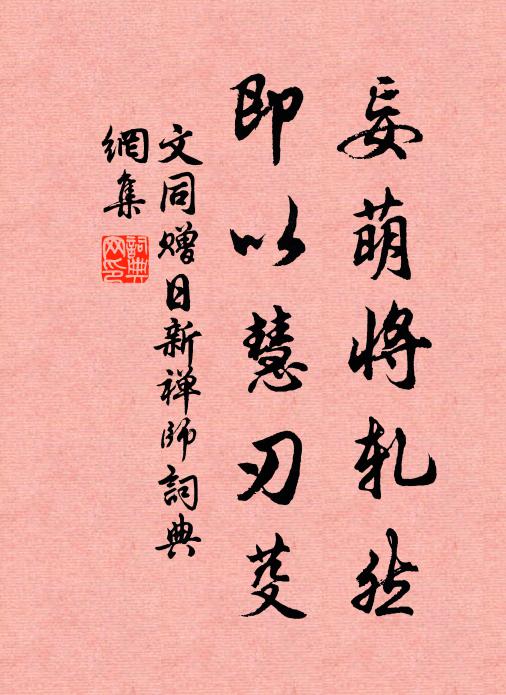 妄萌將軋然
即以慧刃芟
文同贈日新禅师詞典
網集
詞典
网印